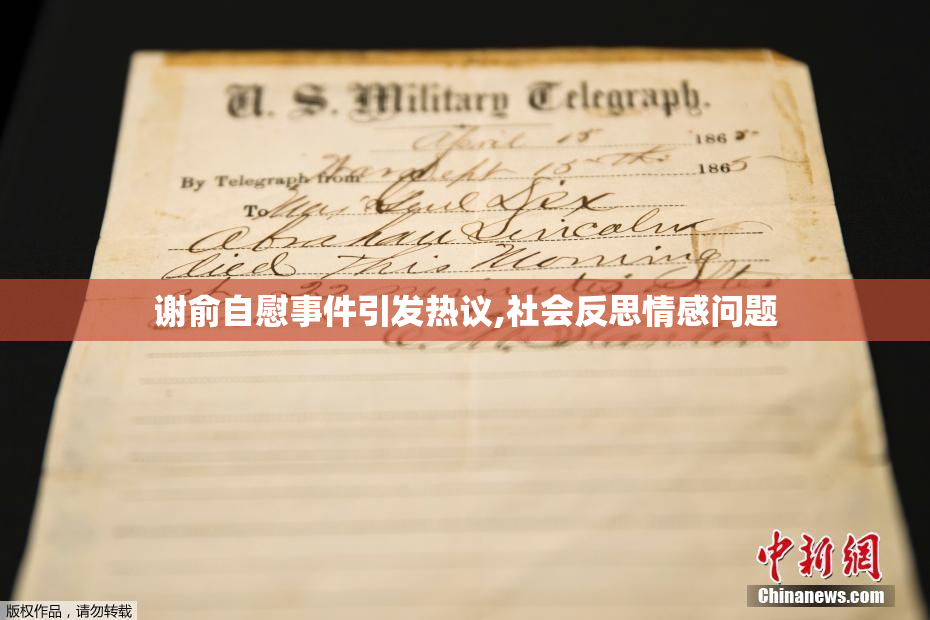 U. S. Military Telegraph.
April 15 1865
By Telegraph from War Dept 15th 1865
To Maj Genl Dix
Abraham Lincoln
died This Morning
at 22 minutes after
谢俞自慰事件引发热议,社会反思情感问题
中新网
Chinanews.com
版权作品，请勿转载